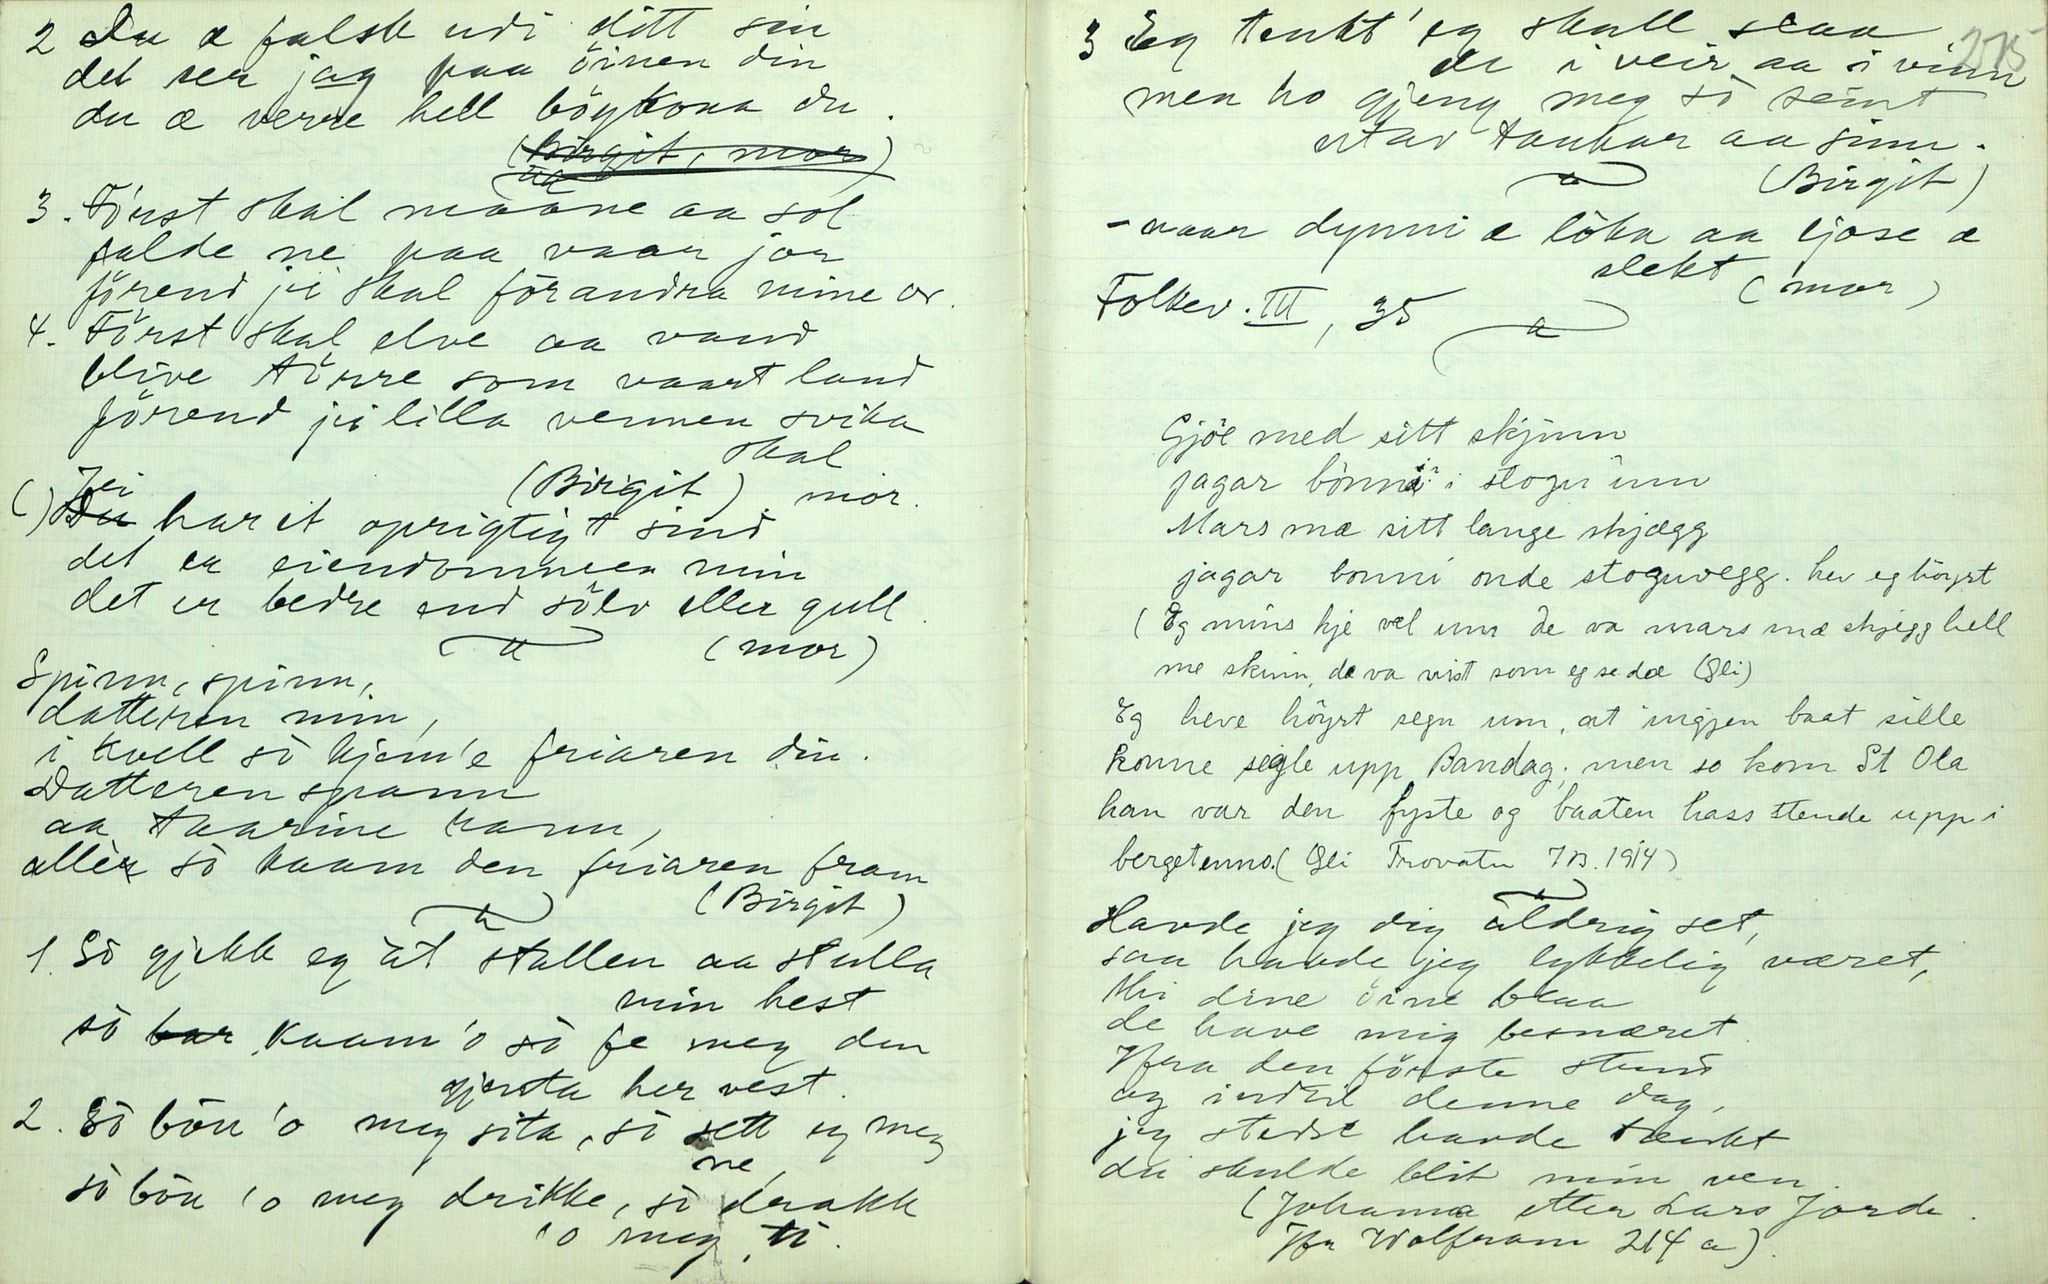 2 Du æ falsk udi ditt sin
det ser jag paa öinen din
du æ verre hell böykona du.
(Birgit, mor)
3. Först skal maane aa sol
falde ne paa vaar jor
förend jei skal förandra mine or.
4. Först skal elve aa vand
blive törre som vaart land
förend jei lilla vennen svika
skal
(Birgit) mor.
( ) Jei Du har et oprigtigt sind
det er eiendommen min
det er bedre end sölv eller gull.
(mor)
Spinn, spinn,
datteren min,
i kvell so kjem'e friaren din.
Datteren spann
aa taarine rann,
aller so kaam den friaren fram
(Birgit)
1. So gjekk eg åt stallen aa stulla
min hest
so bar kaam'o so fe meg den
gjesta her vest.
2. So bön 'o meg sita, so sett eg meg
ne,
so bön 'o meg drikke, so drakk
'o meg ti.
275
3 Eg tenkt' eg skull slaa
de i veir aa i vinn
men ho gjeng meg so seint
utav tankar aa sinn.
(Birgit)
- naar dynni æ löka aa ljose æ
slekt (mor)
Folkev. III, 35
Gjöe med sitt skjinn
jagar bönni i stogu inn
Mars mæ sitt lange skjægg
jagar bonni onde stoguvegg. hev eg höyrt
(Eg mins kje vel um de va mars mæ skjegg hell
me skinn, de va vist som eg se dæ (Gli)
Eg heve höyrt segn um, at ingjen baat sille
konne segle upp Bandag; men so kom St Ola
han var den fyste og baaten hass stende upp i
bergetenno. (Gli Trovatn 7/3. 1914)
Havde jeg dig aldrig set,
saa havde jeg lykkelig været,
thi dine öine blaa
de have mig besnæret.
Ifra den förste stund
og indtil denne dag,
jeg stedse havde tænkt
du skulde blit min ven.
(Johanna etter Lars Jorde.
Ifr Wolfram 214 a).